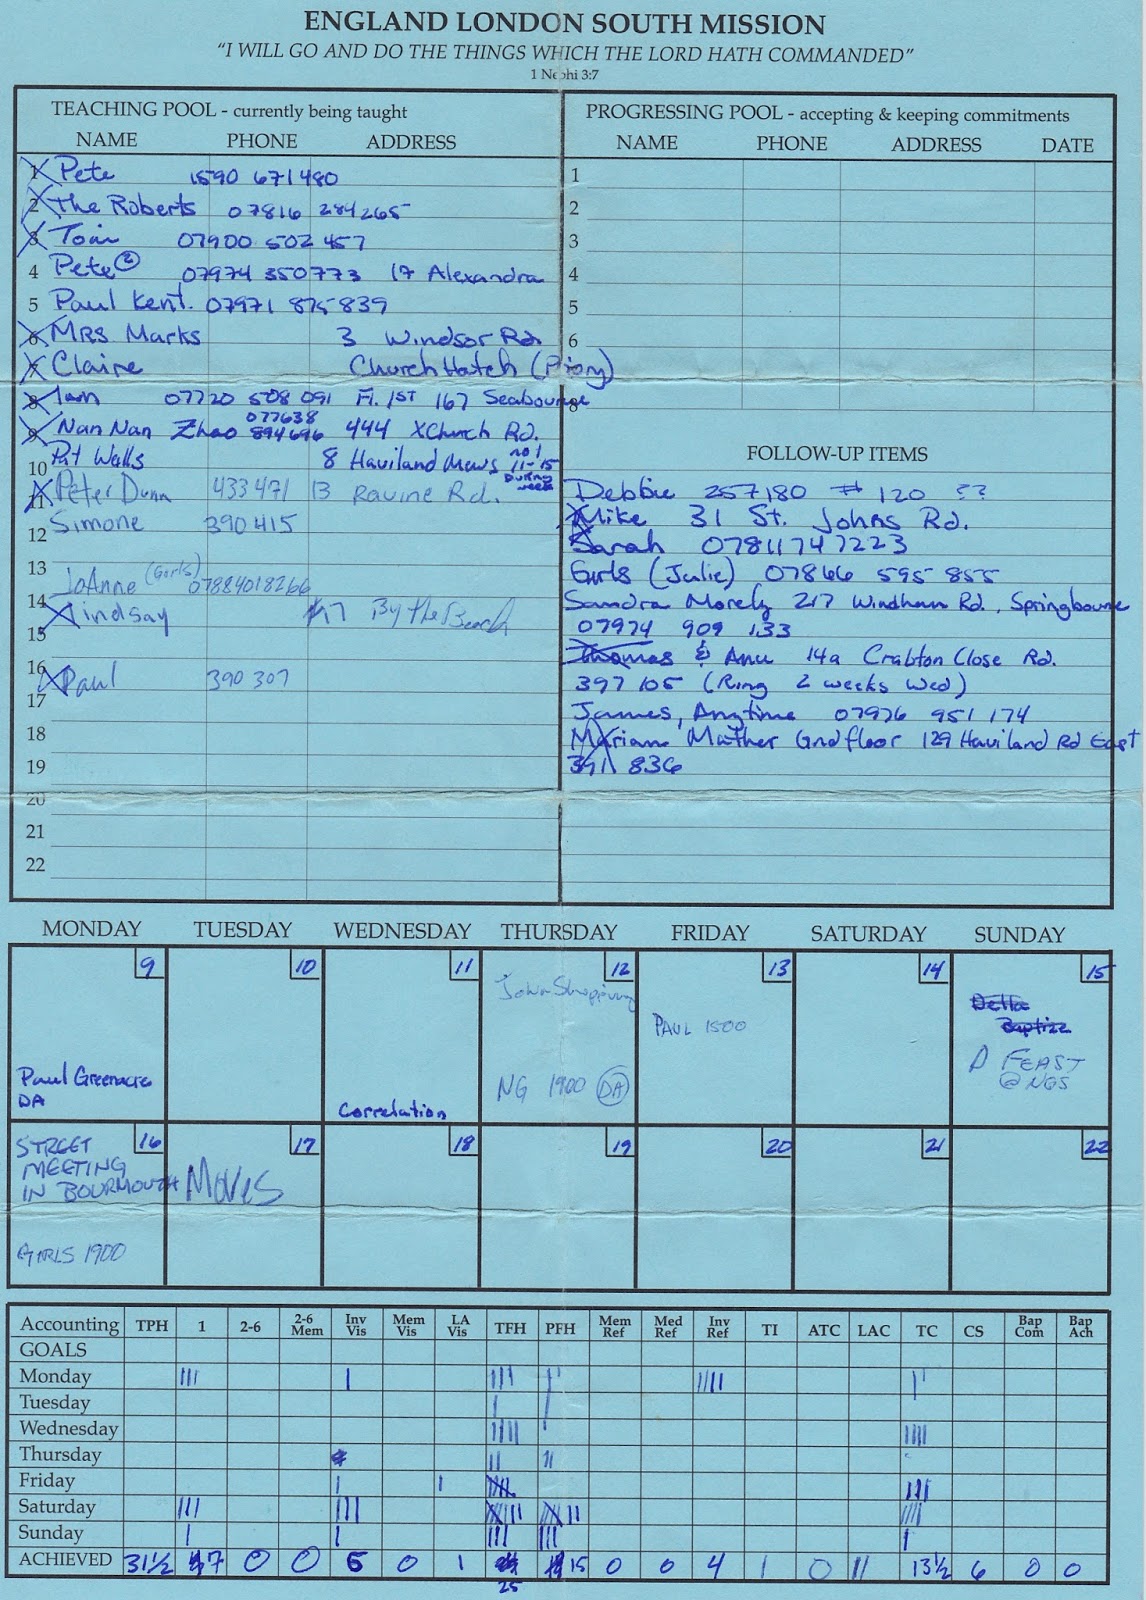 ENGLAND LONDON SOUTH MISSION
"I WILL GO AND DO THE THINGS WHICH THE LORD HATH COMMANDED"
1 Nephi 3:7
TEACHING POOL - currently being taught
NAME PHONE ADDRESS
1 Pete 1590 671480
2 The Roberts 07816 284265
3 Tom 07900 502 457
4 Pete 2 07974 350773 17 Alexandra
5 Paul Kent. 07971 875839
6 MRS Marks 3 Windsor Rd.
7 Claire Church Hatch (Priory)
8 Ian 07720 508 091 Fl. 1ST 167 Seabourne
077638
9 Nan Nan Zhao 894696 444 XChurch Rd.
10 Pat Walls 8 Haviland Mews no! 11-15 During week
11 Peter Dunn 433471 13 Ravine Rd.
12 Simone 390415
13
JoAnne (Girls) 07884018266
14 Lindsay #17 By the Beach
15
16 Paul 390 307
17
18
19
20
21
22
PROGRESSING POOL - accepting & keeping commitments
NAME PHONE ADDRESS DATE
1
2
3
4
5
6
7
8
FOLLOW-UP ITEMS
Debbie 257180 # 120 ??
Mike 31 St. Johns Rd.
Sarah 07811747223
Girls (Julie) 07866 595 855
Sandra Morely 217 Windham Rd., Springbourne
07974 909 133
Thomas & Anu 14a Crabton Close Rd.
397 105 (Ring 2 weeks Wed)
James, Anytime 07976 951 174
Mariam Mather Gnd floor 129 Haviland Rd East
391 836
MONDAY TUESDAY WEDNESDAY THURSDAY FRIDAY SATURDAY SUNDAY
9 10 11 12 13 14 15
John Shopping
Della
Baptize
PAUL 1500
D FEAST
@ NGS
Paul Greenacre
DA
NG 1900 DA
Correlation
16 17 18 19 20 21 22
STREET
MEETING
IN BOURMOUTH
Moves
GIRLS 1900
Accounting TPH 1 2-6 2-6 Mem Inv Vis Mem Vis LA Vis TFH PFH Mem Ref Med Ref Inv Ref TI ATC LAC TC CS Bap Com Bap Ach
GOALS
Monday III I III II IIII II
Tuesday I I
Wednesday IIII IIII
Thursday II II
Friday I I IIII III
Saturday III III IIII
Sunday I I III III I
ACHIEVED 31½ 7 0 0 5 0 1 15 0 0 4 1 0 11 13½ 6 0 0
25